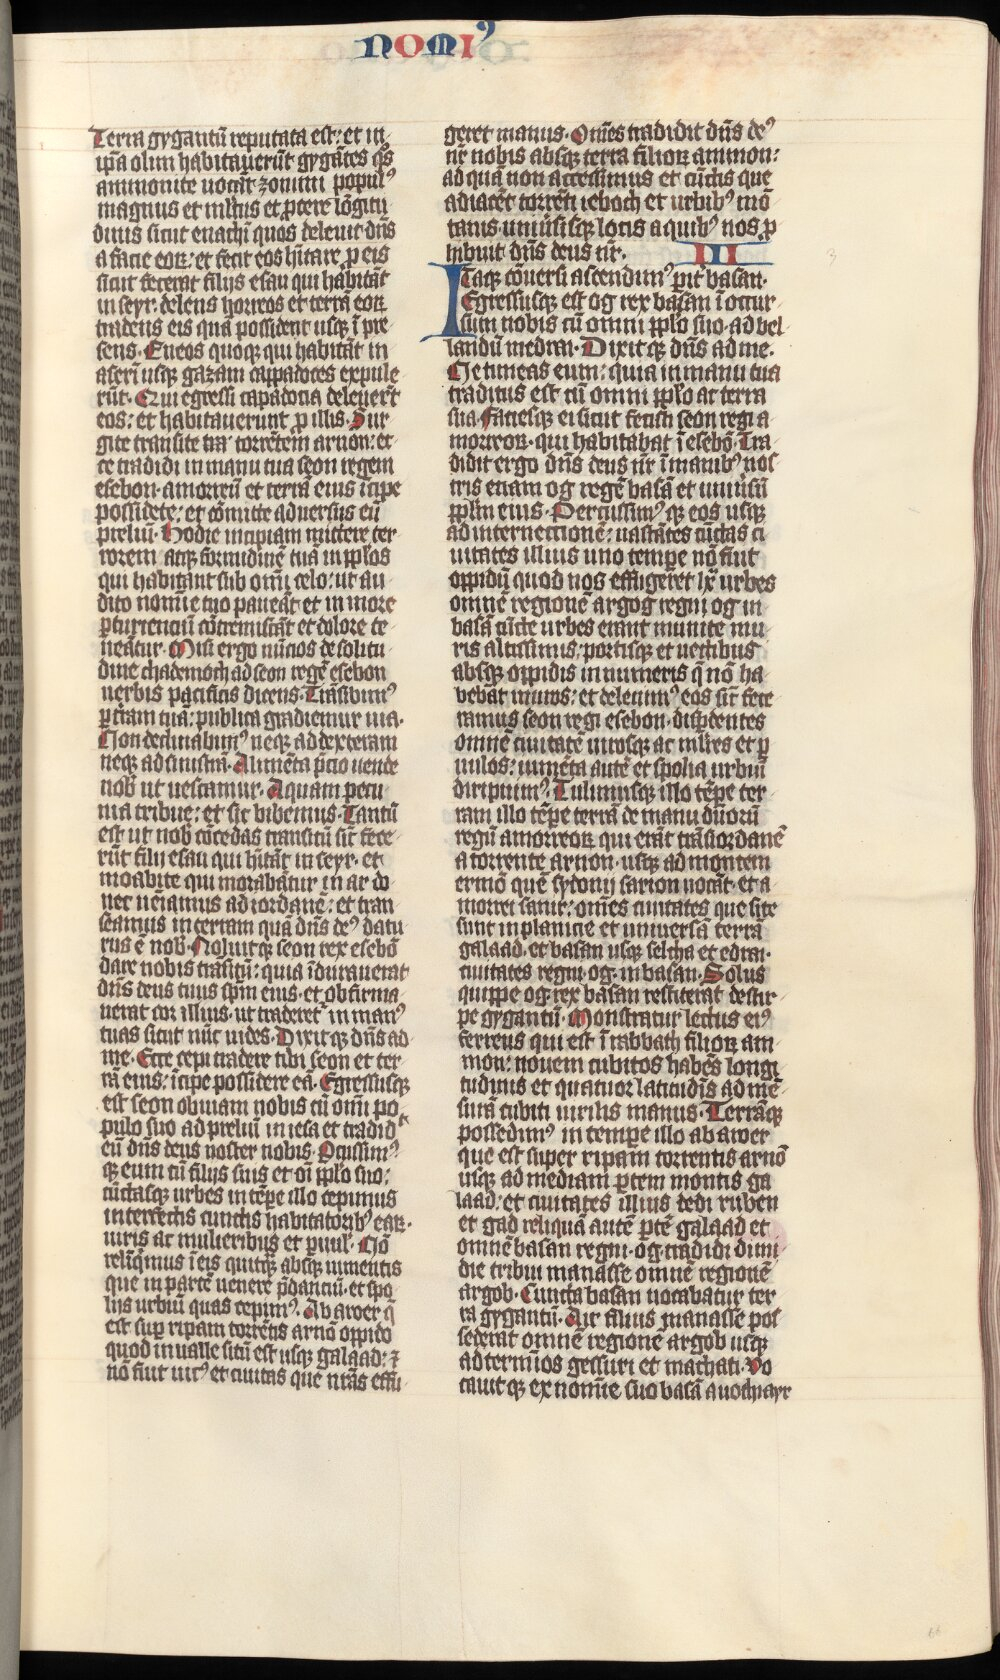 nomiꝰ
Terra gygantū reputata est: et in
ip̄a olim habitauerūt gygātes q̄s
ammonite uocāt zommi popul᷒
magnus et mltus et p̱cere lōgitu
dinis sicut enachi quos deleuit dn̄s
a facie eoꝝ: et fecit eos hītare p̱ eis
sicut fecerat filijs esau qui habitāt
in seyr. delens horreos et terrā eoꝝ
tradens eis quā possident usqꝫ ī pre
sens. Eueos quoqꝫ qui habitāt in
aserī usqꝫ gazam cappadoces expule
rūt. Qui egressi capadocia deleuert̄
eos: et habitauerunt p̱ illis. Sur
gite transite tra torrētem arnon: et
ce tradidi in manu tua seon regem
esebon amorreū et terrā eius īcipe
possidere: et cōmitte aduersus eū
preliū. Hodie incipiam mictere ter
rorem atqꝫ formidinē tuā in pplos
qui habitant sub om̄i celo: ut au
dito nomīe tuo paueāt et in more
ꝑturienciū cōtremiscāt et dolore te
neātur. Misi ergo nūcios de solitu
dine chademoth ad seon regē esebon
uerbis pacificis dicens. Trāsibim᷒
ꝑ trām tuā: publica gradiemur uia.
Non declinabim᷒ neqꝫ ad dexteram
neqꝫ ad sinistrā. Alimēta p̄cio uende
nob̄ ut uescamur. Aquam pecu
nia tribue: et sic bibemus. Tantū
est ut nob̄ cōcedas transitū sic̄ fece
rūt filij esau qui hītāt in seyr. et
moabite qui morabātur in ar do
nec ueīamus ad iordanē: et tran
seamus in terram quā dn̄s de᷒ datu
rus ē nob̄. Noluitqꝫ seon rex esebō
dare nobis trāsitū: quia īdurauerat
dn̄s deus tuus sp̄m eius. et obfirma
uerat cor illius. ut traderet in man᷒
tuas sicut nūc uides. Dixitqꝫ dn̄s ad
me. Ecce cepi tradere tibi seon et ter
rā eius: īcipe possidere eā. Egressusqꝫ
est seon obuiam nobis cū om̄i po
pulo suo ad preliū in iesa et tradidᵗ
eū dn̄s deus noster nobis. Ꝑcussim᷒
qꝫ eum cū filijs suis et oī pplo suo:
cūctasqꝫ urbes in tēpe illo cepimus
interfectis cunctis habitatorib᷒ eaꝝ.
uiris ac mulieribus et puul̄. Nō
reliq̄mus ī eis quicqꝫ absqꝫ iumentis
que in partē uenere p̄danciū. et spo
lijs urbiū quas cepim᷒. Ab aroer q̄
est sup ripam torrētis arnō oppido
quod in ualle sitū est usqꝫ galaad: ⁊
nō fuit uic᷒ et ciuitas que nr̄as effu
geret manus. Om̄es tradidit dn̄s de᷒
nr̄ nobis absqꝫ terra filioꝝ ammon:
ad quā non accessimus et cūctis que
adiacēt torrēti ieboch et urbib᷒ mō
tanis uniūsisqꝫ locis a quib᷒ nos p̱
hibuit dn̄s deus nr̄. III
Itaqꝫ cōuersi ascendim᷒ ꝑ it̄ basan.
Egressusqꝫ est og rex basan ī occur
sum nobis cū omni pplo suo ad bel
landū in edrai. Dixitqꝫ dn̄s ad me.
Ne timeas eum: quia in manu tua
traditus est cū omni pplo ac terra
sua. Faciesqꝫ ei sicut fecisti seon regi a
morreoꝝ. qui habitabat ī esebō. Tra
didit ergo dn̄s deus nr̄ ī manib᷒ nos
tris etiam og regē basā et uniūsū
pplm eius. Percussim᷒qꝫ eos usqꝫ
ad internectionē: uastātes cūctas ci
uitates illius uno tempe nō fuit
oppidū quod nos effugeret lx urbes
omnē regionē argog regni og in
basā cūcte urbes erant munite mu
ris altissimis, portisqꝫ et uectibus
absqꝫ oppidis innumeris q̄ nō ha
bebāt muros: et deleuim᷒ eos sic̄ fece
ramus seon regi esebon. disp̱dentes
omnē ciuitatē uirosqꝫ ac ml̄res et p
uulos: iumēta autē et spolia urbiū
diripuim᷒. Tulimusqꝫ illo tēpe ter
ram illo tēpe terrā de manu duorū
regū amorreoꝝ qui erāt trāsiordanē
a torrente arnon. usqꝫ ad montem
ermō quē sydonij sarion uocāt. et a
morrei sanir: om̄es ciuitates que site
sunt in planicie et uniuersā terrā
galaad. et basan usqꝫ selcha et edrai.
ciuitates regni. og. in basan. Solus
quippe og. rex basan restiterat destir
pe gygantū. Monstratur lectus ei᷒
ferreus qui est ī rabbath filioꝝ am
mon: nouem cubitos habēs longi
tudinis et quatuor latitudīs ad mē
surā cubiti uirilis manus. Terrāqꝫ
possedim᷒ in tempe illo ab aroer
que est super ripam torrentis arnō
usqꝫ ad mediam ꝑtem montis ga
laad: et ciuitates illius dedi ruben
et gad reliquā autē ꝑtē galaad et
omnē basan regni. og. tradidi dimi
die tribui manasse omnē regionē
argob. Cuncta basan uocabatur ter
ra gygantū. Air filius manasse pos
sederat omnē regionē argob usqꝫ
ad termīos gessuri et machati. Vo
cauitqꝫ ex nomīe suo basā auochiayr
3
66